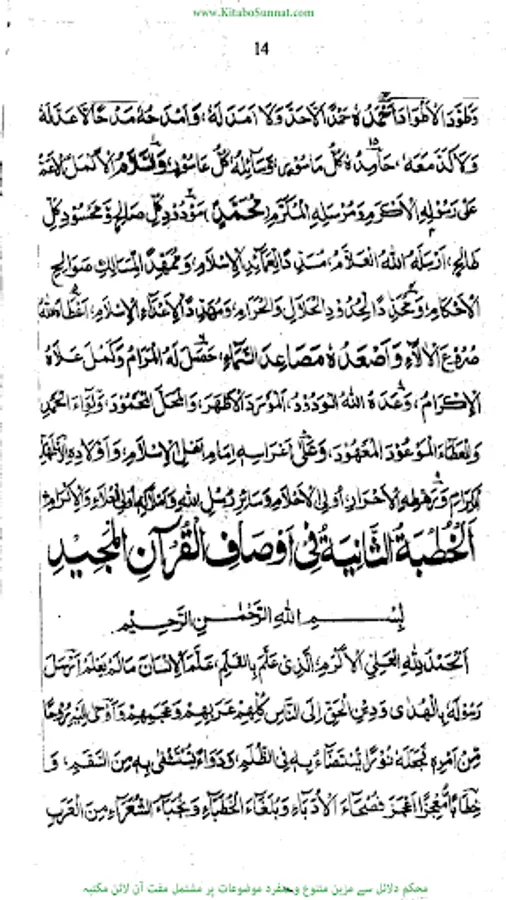 www.KitaboSunnat.com
14
وَطَوَّدَ الْأَطْوَادَ أَحْمَدُهُ حَمْدًا لَا حَدَّ وَلَا أَمَدَ لَهُ، وَأَمْدَحُهُ مَدْحًا لَا عَدَّ لَهُ
وَلَا كُلُّ مَا سُوِّسَ، وَسَائِلُهُ كُلُّ وَالسَّلَامُ الْأَكْمَلُ
عَلَى رَسُولِهِ الْأَكْرَمِ وَمُرْسَلِهِ الْمُكَرَّمِ مُحَمَّدٍ مَوْدُودِ كُلِّ صَالِحٍ وَمَحْسُودِ كُلِّ
طَالِحٍ، أَرْسَلَهُ اللهُ الْعَلَّامُ، الْإِسْلَامِ، وَمُمَهِّدَ الْمَسَالِكِ صَوَالِحِ
الْأَحْكَامِ، وَمُحَدِّدًا لِحُدُودِ الْحَلَالِ وَالْحَرَامِ، الْإِسْلَامِ، أَعْطَاهُ اللهُ
الْآلَاءِ وَأَصْعَدَهُ مَصَاعِدَ السَّمَاءِ، حَصَلَ لَهُ الْمَرَامُ وَكَمُلَ
الْإِكْرَامُ، وَعَدَهُ اللهُ الْوَدُودُ، الْمَوْرِدَ الْأَطْهَرَ، وَالْمَحَلَّ الْمَحْمُودَ، وَلِوَاءَ الْحَمْدِ
وَالْعَطَاءَ الْمَوْعُودَ الْمَعْهُودَ، وَعَلَى إِمَامِ أَهْلِ الْإِسْلَامِ، وَأَوْلَادِهِ
الْكِرَامِ وَرَهْطِهِ الْأَحْرَارِ، أُولِي الْأَحْلَامِ وَسَائِرِ رُسُلِ اللهِ
اَلْخُطْبَةُ الثَّانِيَةُ فِي أَوْصَافِ الْقُرْآنِ الْمَجِيدِ
بِسْمِ اللهِ الرَّحْمٰنِ الرَّحِيْمِ
اَلْحَمْدُ لِلّٰهِ الْعَلِيِّ الْأَكْرَمِ، الَّذِي عَلَّمَ بِالْقَلَمِ، عَلَّمَ الْإِنْسَانَ مَا لَمْ يَعْلَمْ أَرْسَلَ
رَسُولَهُ بِالْهُدَى وَدِيْنِ الْحَقِّ إِلَى النَّاسِ كُلِّهِمْ عَرَبِهِمْ وَعَجَمِهِمْ وَأَوْحَى إِلَيْهِ رُوْحًا
مِّنْ أَمْرِهِ فَجَعَلَهُ نُوْرًا يُسْتَضَاءُ بِهِ فِي الظُّلَمِ، وَدَوَاءً يُسْتَشْفٰى بِهِ مِنَ السَّقَمِ، وَ
خِطَابًا مُّعْجِزًا أَعْجَزَ فُصَحَاءَ الْأُدَبَاءِ وَبُلَغَاءَ الْخُطَبَاءِ وَنُجَبَاءَ الشُّعَرَاءِ مِنَ الْعَرَبِ
محکم دلائل سے مزین متنوع و منفرد موضوعات پر مشتمل مفت آن لائن مکتبہ